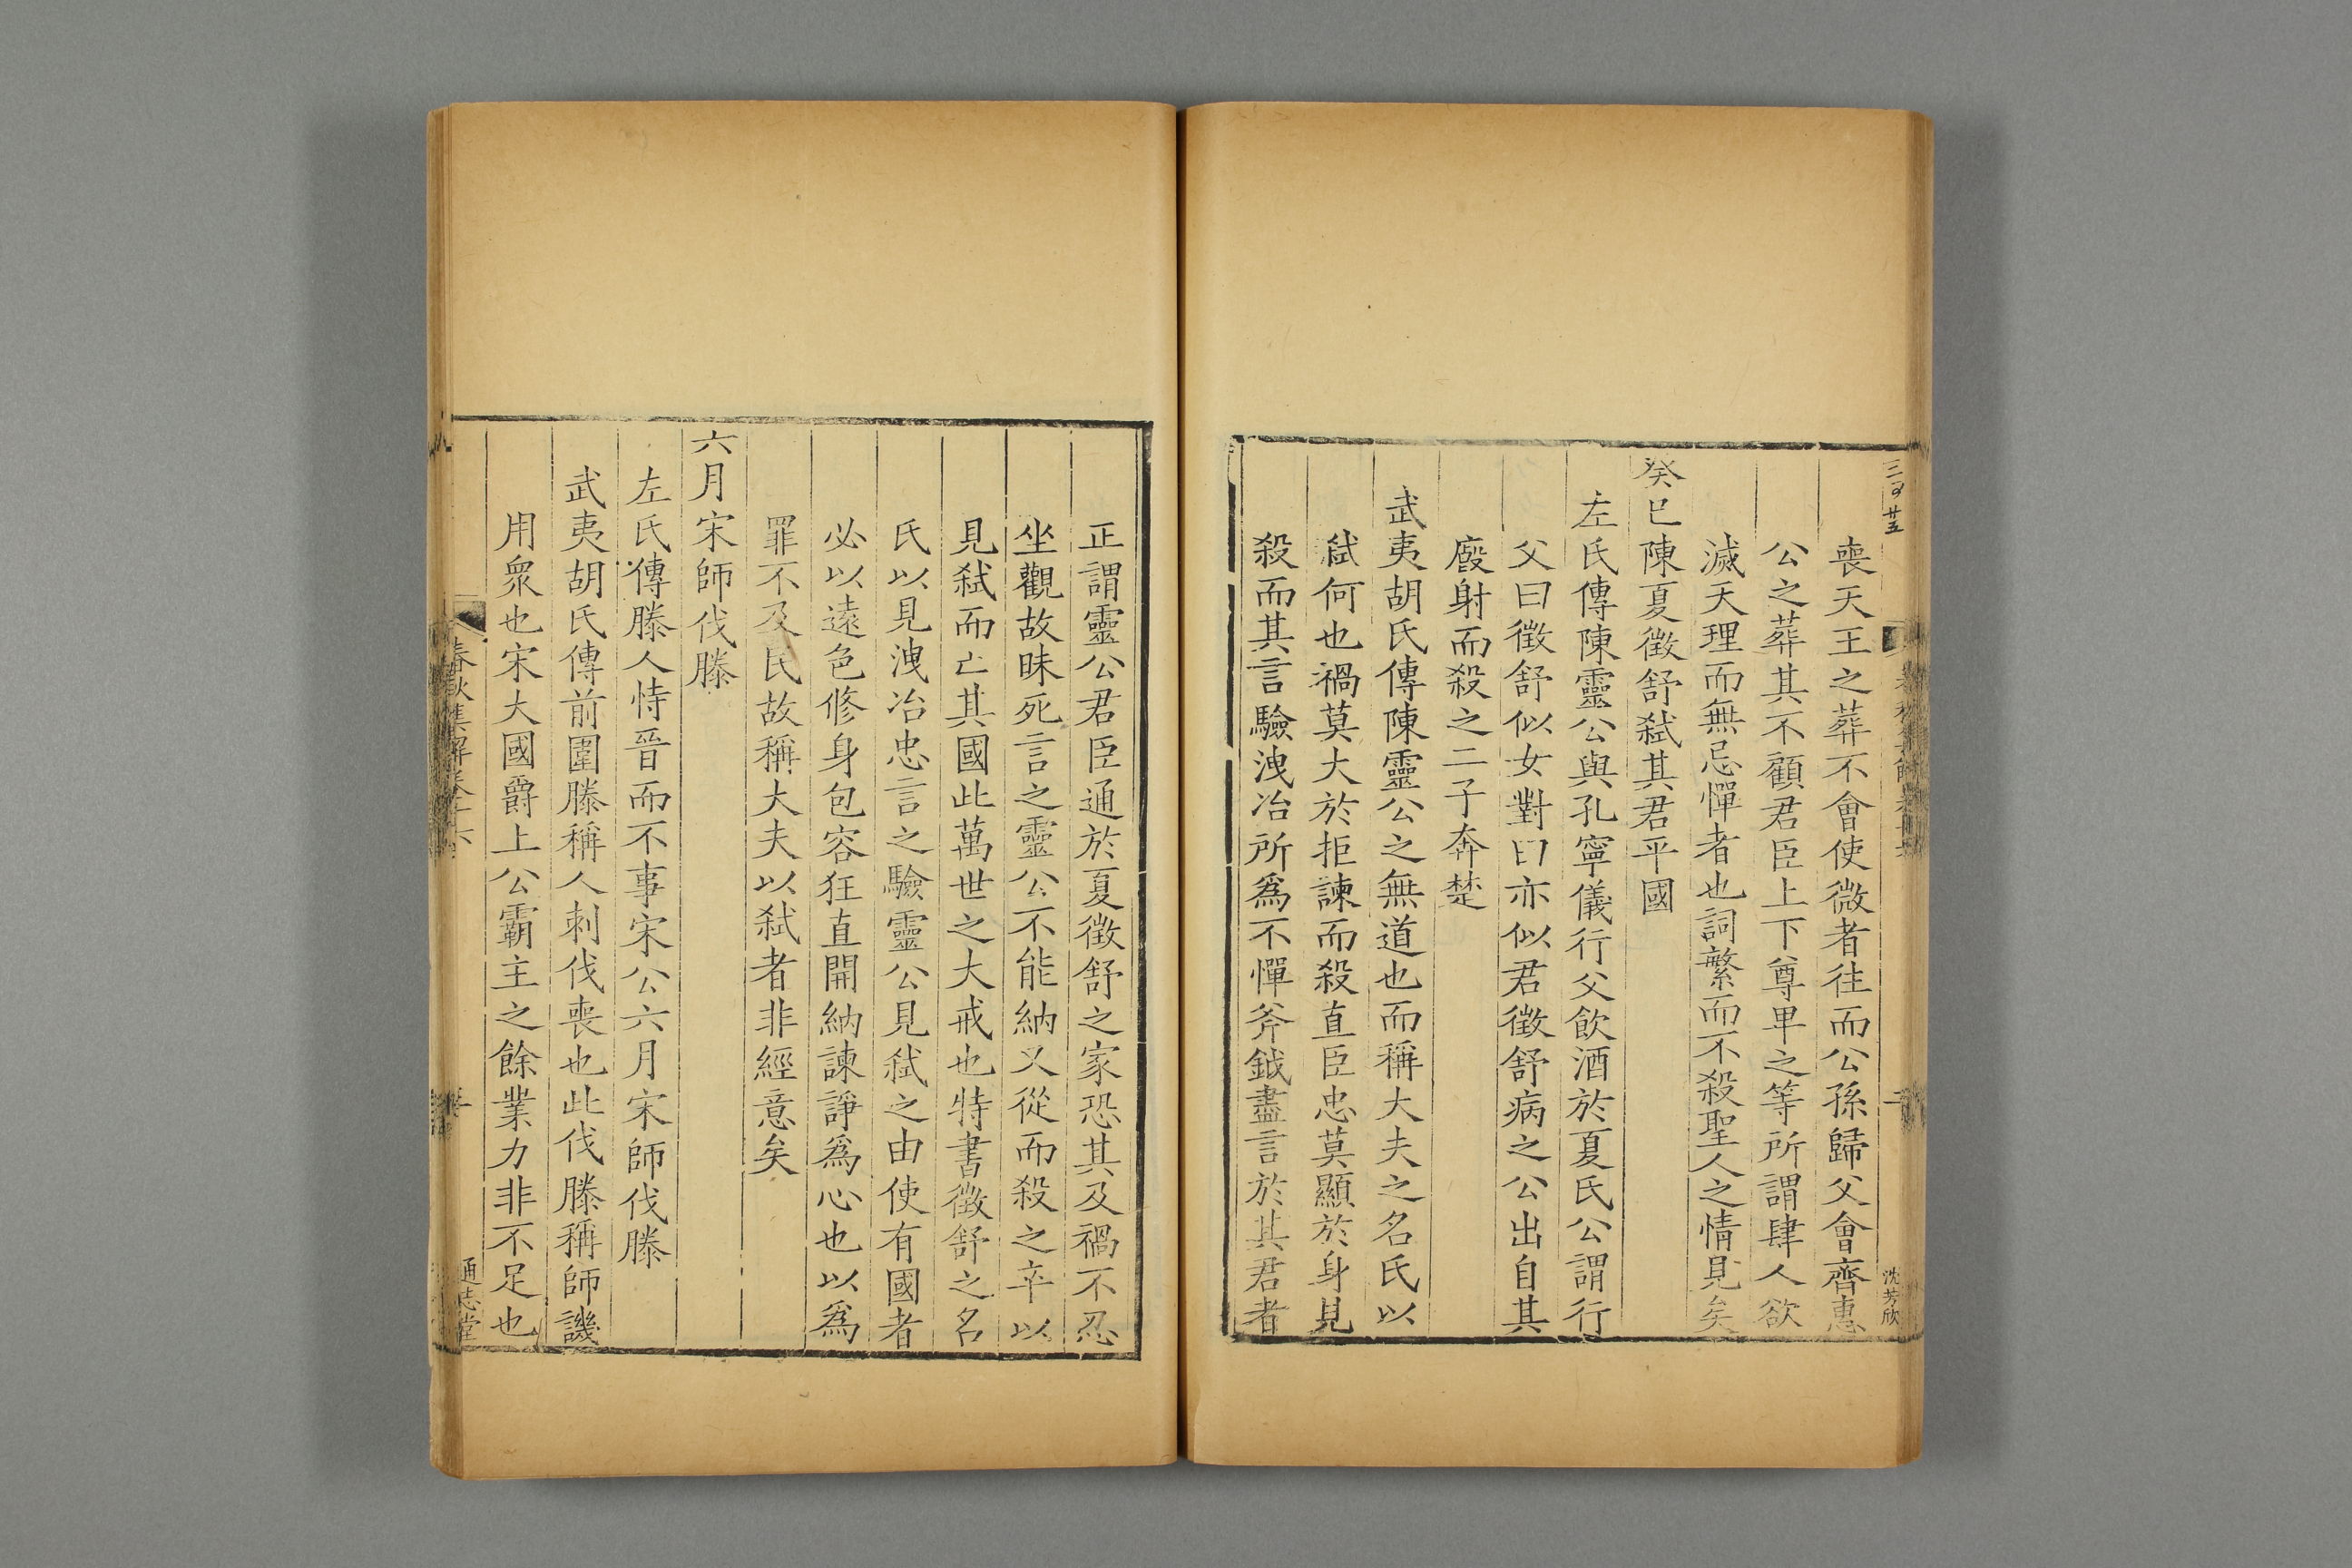 喪天王之葬不會使微者往而公孫歸父會齊惠
公之葬其不顧君臣上下尊卑之等所謂肆人欲
滅天理而無忌憚者也詞繁而不殺聖人之情見矣
癸巳陳夏徵舒弑其君平國
左氏傳陳靈公與孔寧儀行父飲酒於夏氏公謂行
父曰徵舒似女對曰亦似君徵舒病之公出自其
廄射而殺之二子奔楚
武夷胡氏傳陳靈公之無道也而稱大夫之名氏以
弑何也禍莫大於拒諫而殺直臣忠莫顯於身見
殺而其言驗洩冶所爲不憚斧鉞盡言於其君者
沈芳欣
正謂靈公君臣通於夏徵舒之家恐其及禍不忍
坐觀故昧死言之靈公不能納又從而殺之卒以
見弑而亡其國此萬世之大戒也特書徵舒之名
氏以見洩冶忠言之驗靈公見弑之由使有國者
必以遠色修身包容狂直開納諫諍爲心也以爲
罪不及民故稱大夫以弑者非經意矣
六月宋師伐滕
左氏傳滕人恃晉而不事宋公六月宋師伐滕
武夷胡氏傳前圍滕稱人刺伐喪也此伐滕稱師譏
用衆也宋大國爵上公霸主之餘業力非不足也
春秋集解卷十六
通志堂